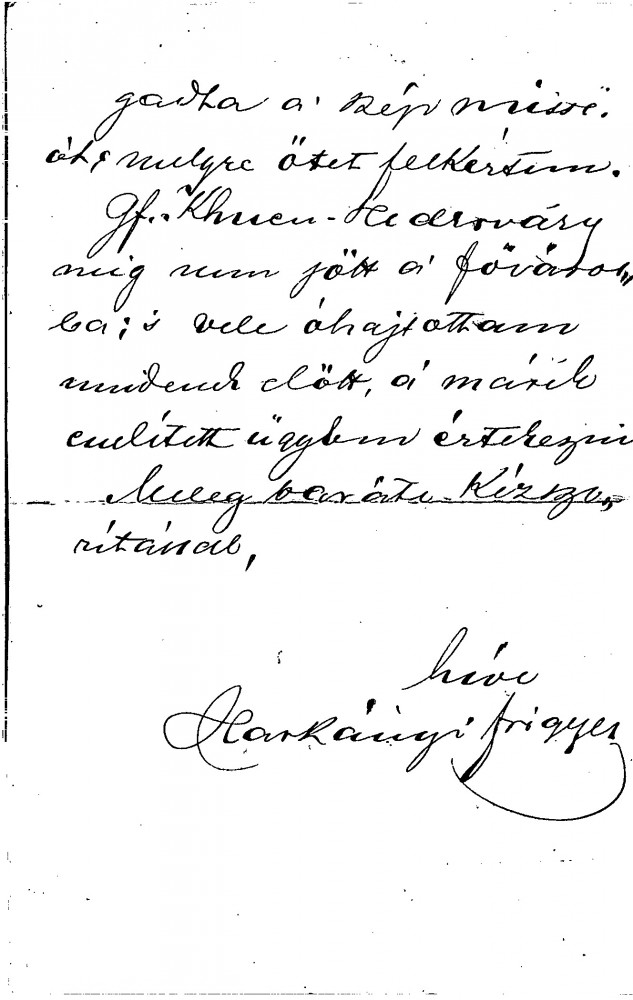 gadta a szép missi-
ót, melyre őtet felkértem.
Gf. Khuen-Hedrováry
még nem jött a főváros„
ba; s vele óhajtottam
mindenek előtt, a másik
említett ügyben értekezni
Meleg baráti kézszo„
rítással,
híve
Harkányi Frigyes